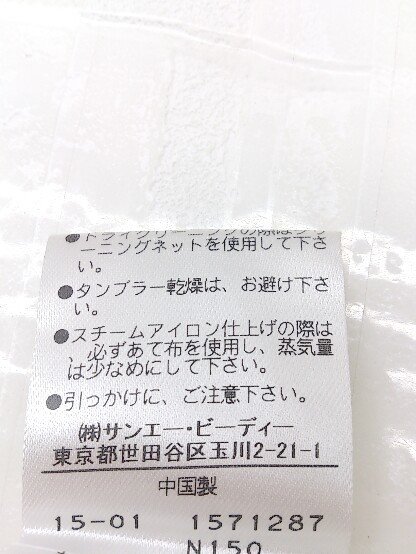 ●ドライクリーニングの際はクリ
ーニングネットを使用して下さ
い。
●タンブラー乾燥は、お避け下さ
い。
●スチームアイロン仕上げの際は
必ずあて布を使用し、蒸気量
は少なめにして下さい。
●引っかけに、ご注意下さい。
㈱サンエー・ビーディー
東京都世田谷区玉川2-21-1
中国製
15-01 1571287
N150